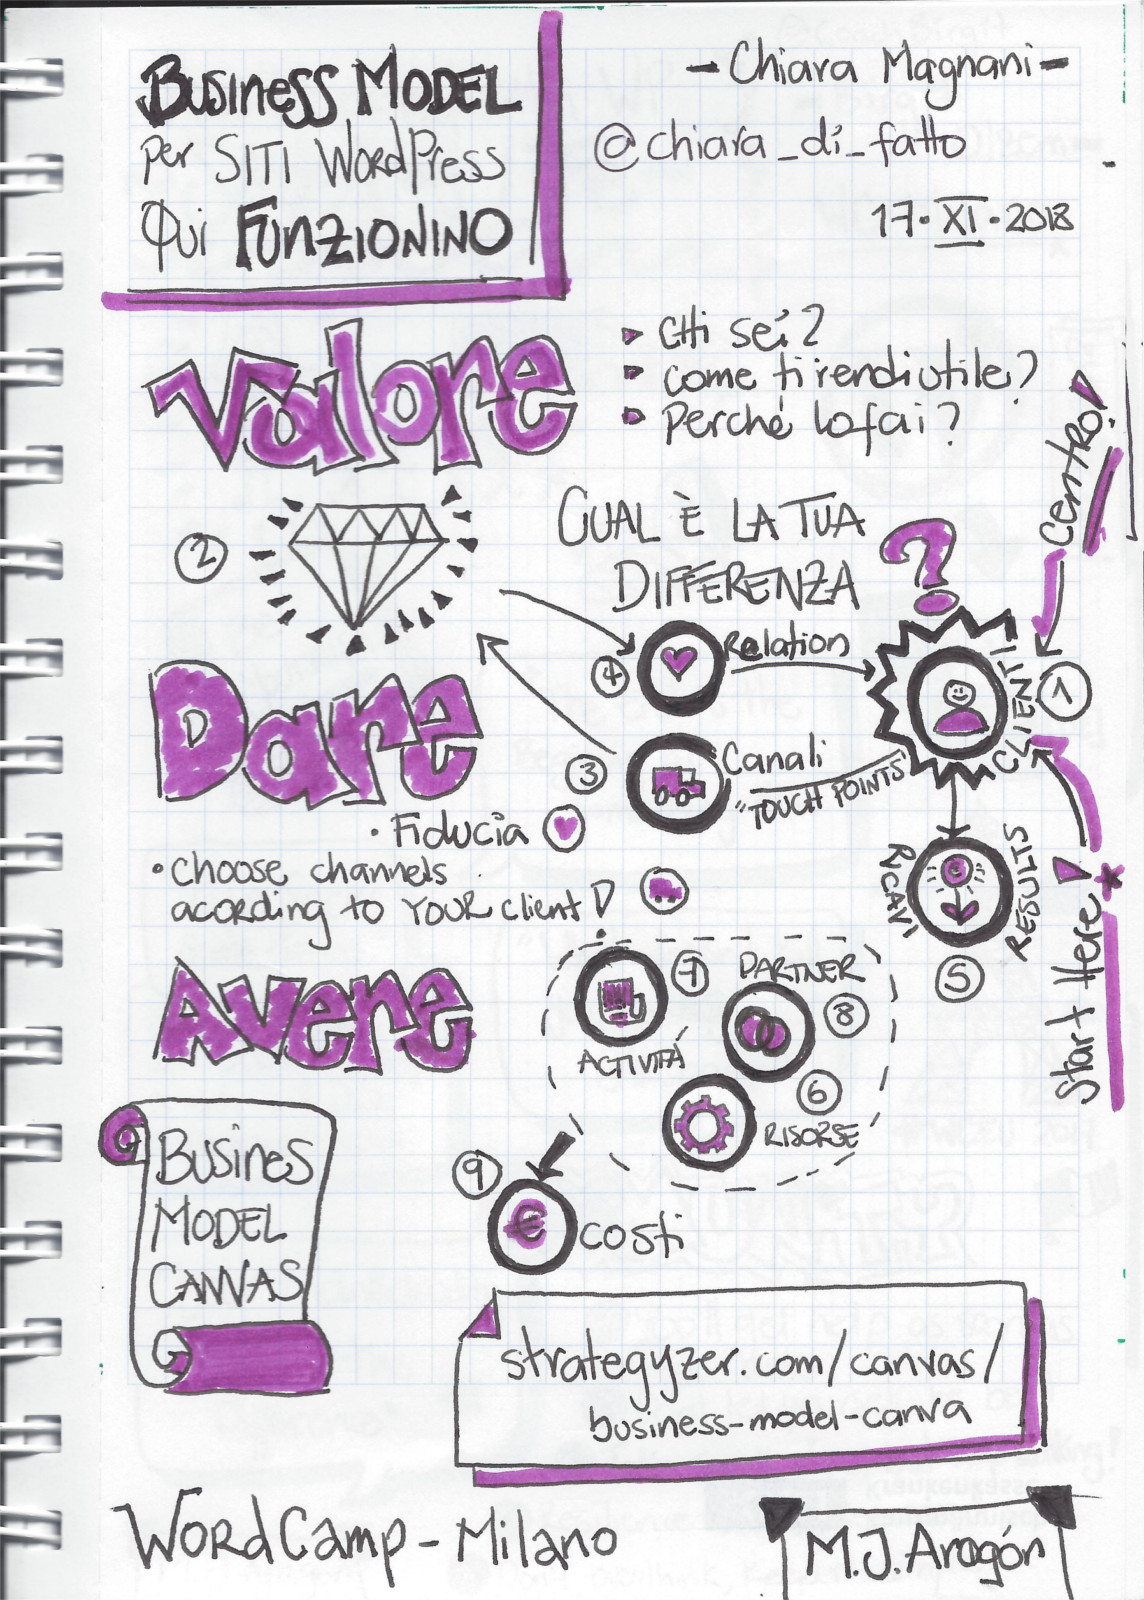 BUSINESS MODEL
per SITI WORDPRESS
Qui FUNZIONINO
- Chiara Magnani -
@chiara_di_fatto
17 · XI · 2018
Valore
CHi sei?
come ti rendi utile?
Perché lo fai?
Centro!
2
CUAL È LA TUA
DIFFERENZA
?
4
Relation
CLIENTI
1
Dare
3
Canali
"TOUCH POINTS"
• Fiducia
• CHOOSE channels
acording to YOUR client!
RICAVI
RESULTS
5
Start Here! *
Avere
7
ACTIVITÁ
PARTNER
8
6
RISORSE
9
€
costi
BUSINES
MODEL
CANVAS
strategyzer.com/canvas/
business-model-canva
WORDCamp - Milano
M.J. Aragón